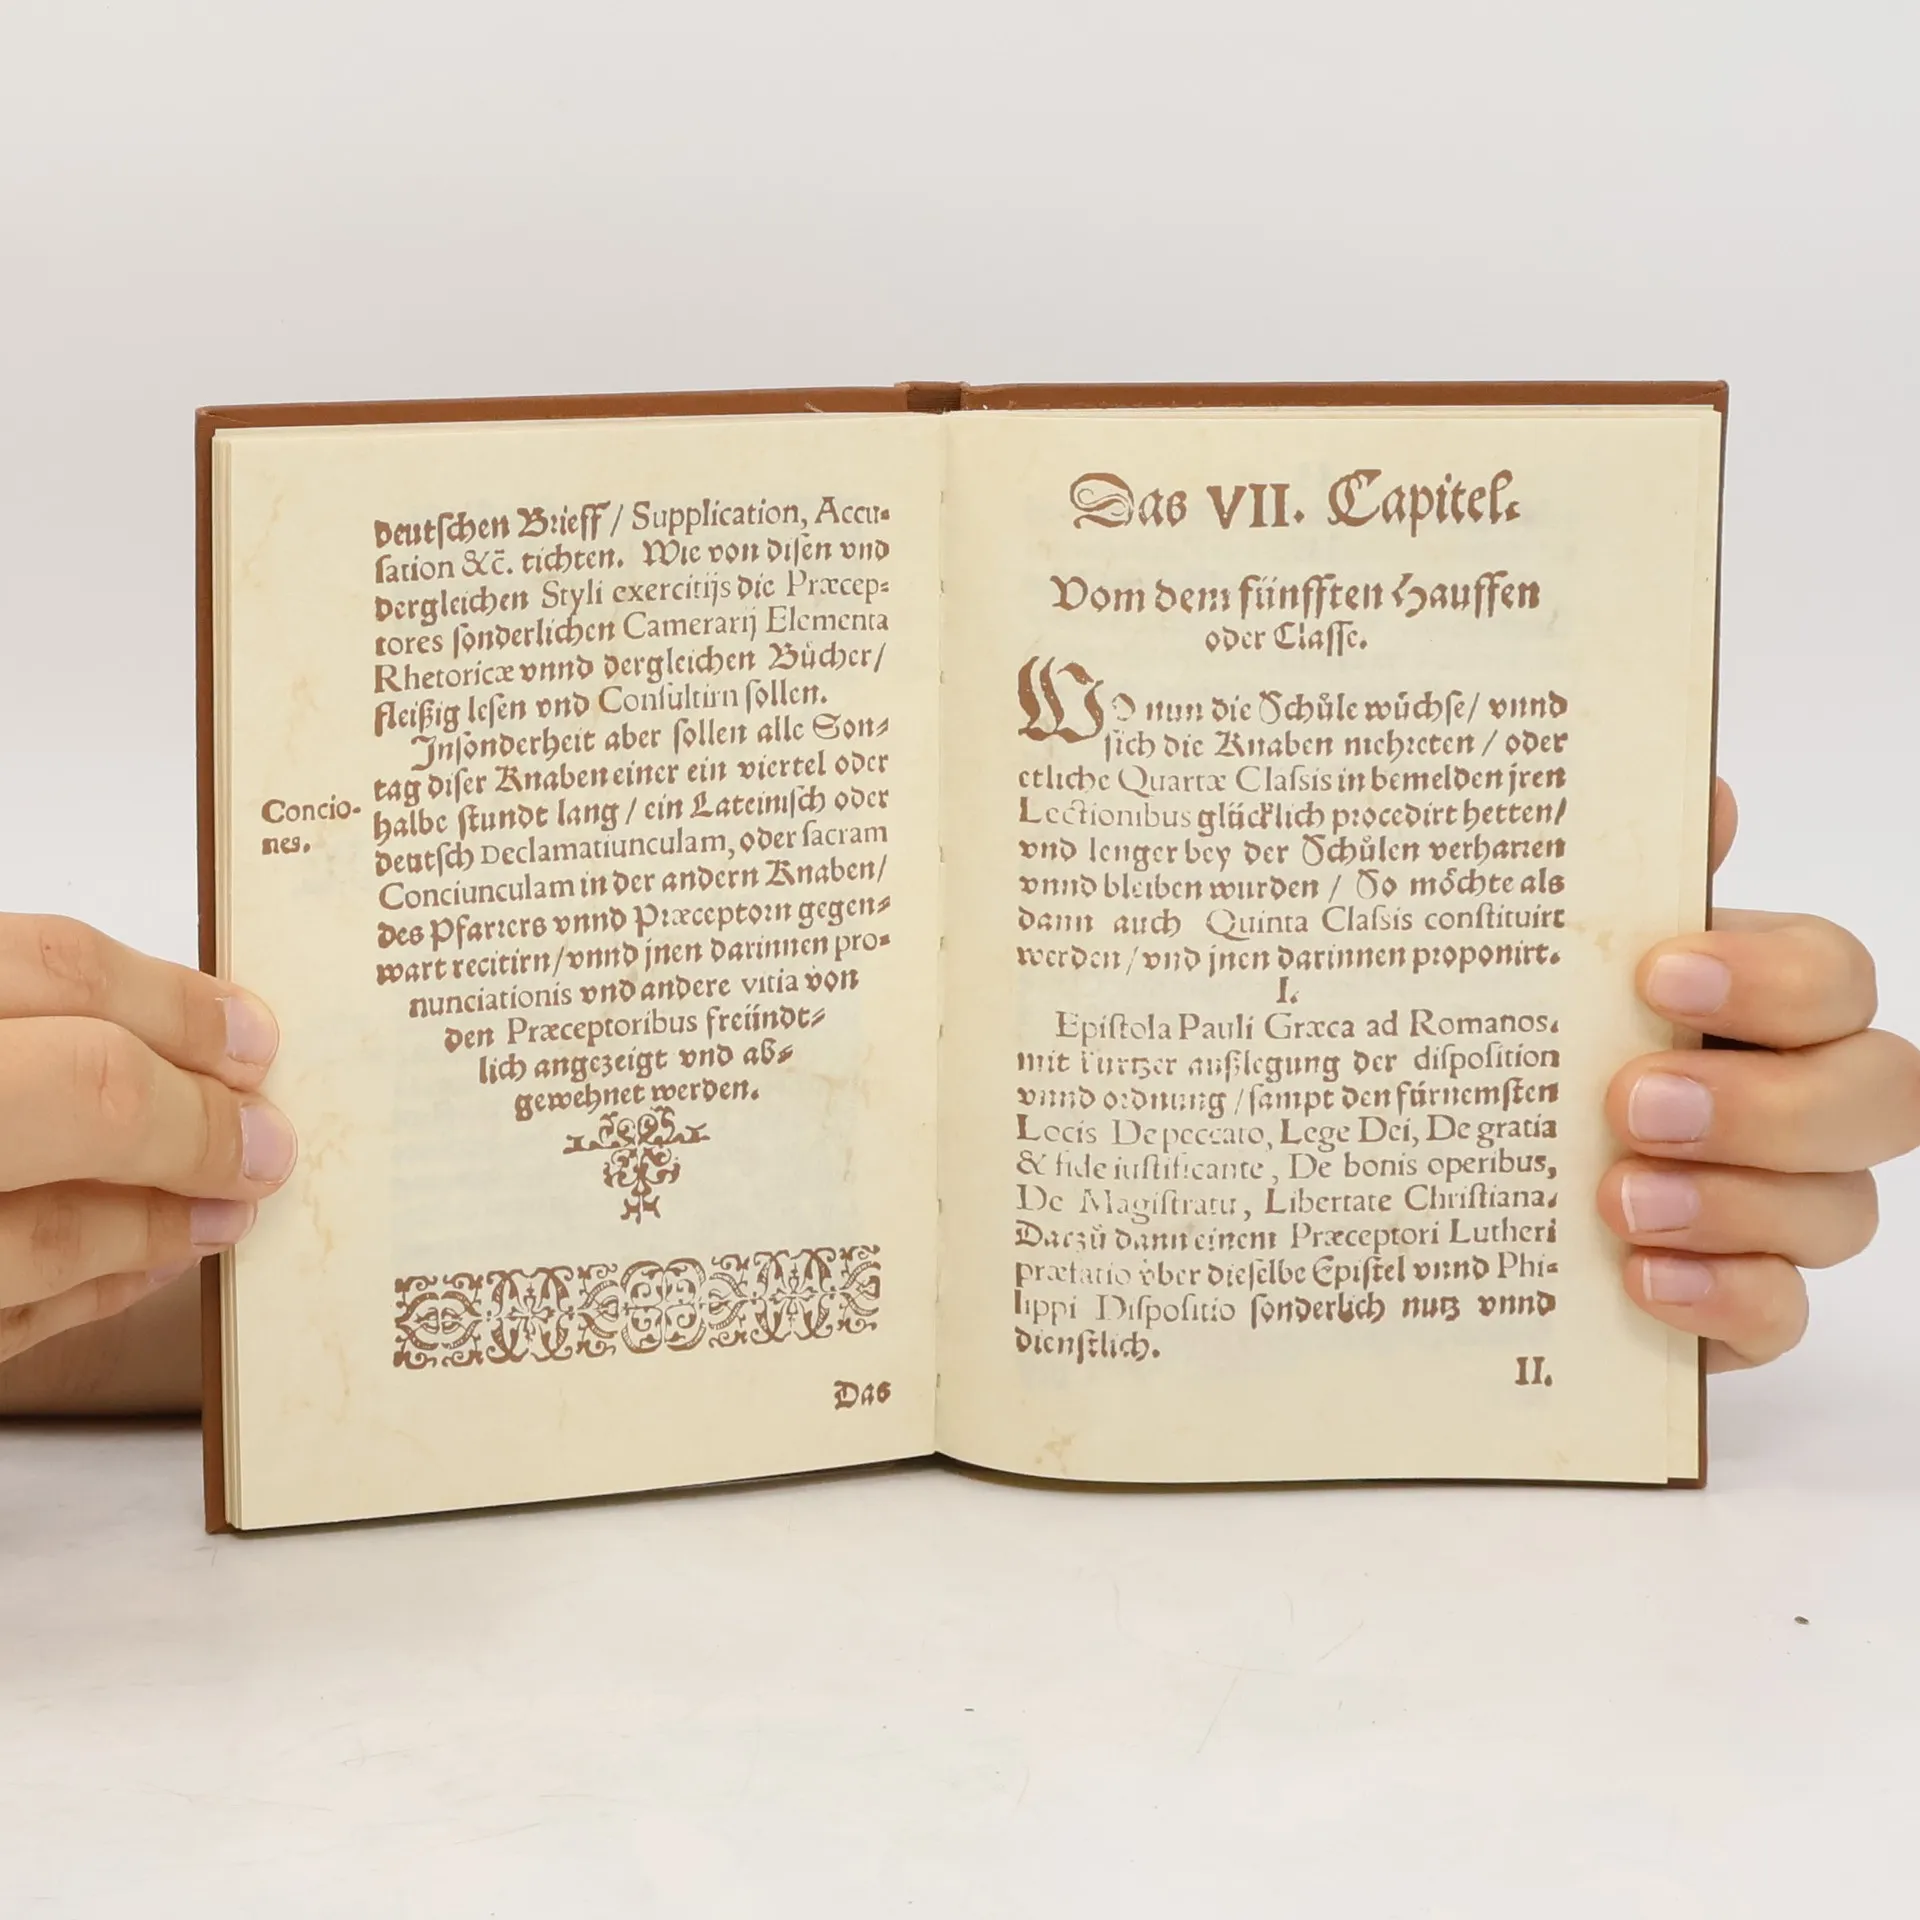 deutſchen Brieff / Supplication, Accu-
ſation &c̄. tichten. Wie von diſen vnd
dergleichen Styli exercitijs die Præcep-
tores ſonderlichen Camerarij Elementa
Rhetoricæ vnnd dergleichen Bůcher/
fleißig leſen vnd Conſultirn ſollen.
Jnſonderheit aber ſollen alle Son-
tag diſer Knaben einer ein viertel oder
halbe ſtundt lang / ein Lateiniſch oder
deutſch Declamatiunculam, oder ſacram
Conciunculam in der andern Knaben/
des Pfarrers vnnd Præceptorn gegen-
wart recitirn/vnnd jnen darinnen pro-
nunciationis vnd andere vitia von
den Præceptoribus freündt-
lich angezeigt vnd ab-
gewehnet werden.
Concio-
nes.
Das
Das VII. Capitel.
Vom dem fünfften Hauffen
oder Claſſe.
WO nun die Schůle wůchſe/ vnnd
ſich die Knaben mehreten / oder
etliche Quartæ Claſsis in bemelden jren
Lectionibus glücklich procedirt hetten/
vnd lenger bey der Schůlen verharren
vnnd bleiben wurden / So möchte als
dann auch Quinta Claſsis conſtituirt
werden/vnd jnen darinnen proponirt.
I.
Epiſtola Pauli Græca ad Romanos.
mit kurtzer außlegung der diſpoſition
vnnd ordnung /ſampt den fürnemſten
Locis De peccato, Lege Dei, De gratia
& fide iuſtificante, De bonis operibus,
De Magiſtratu, Libertate Chriſtiana.
Darzů dann einem Præceptori Lutheri
præfatio vber dieſelbe Epiſtel vnnd Phi-
lippi Diſpoſitio ſonderlich nutz vnnd
dienſtlich.
II.